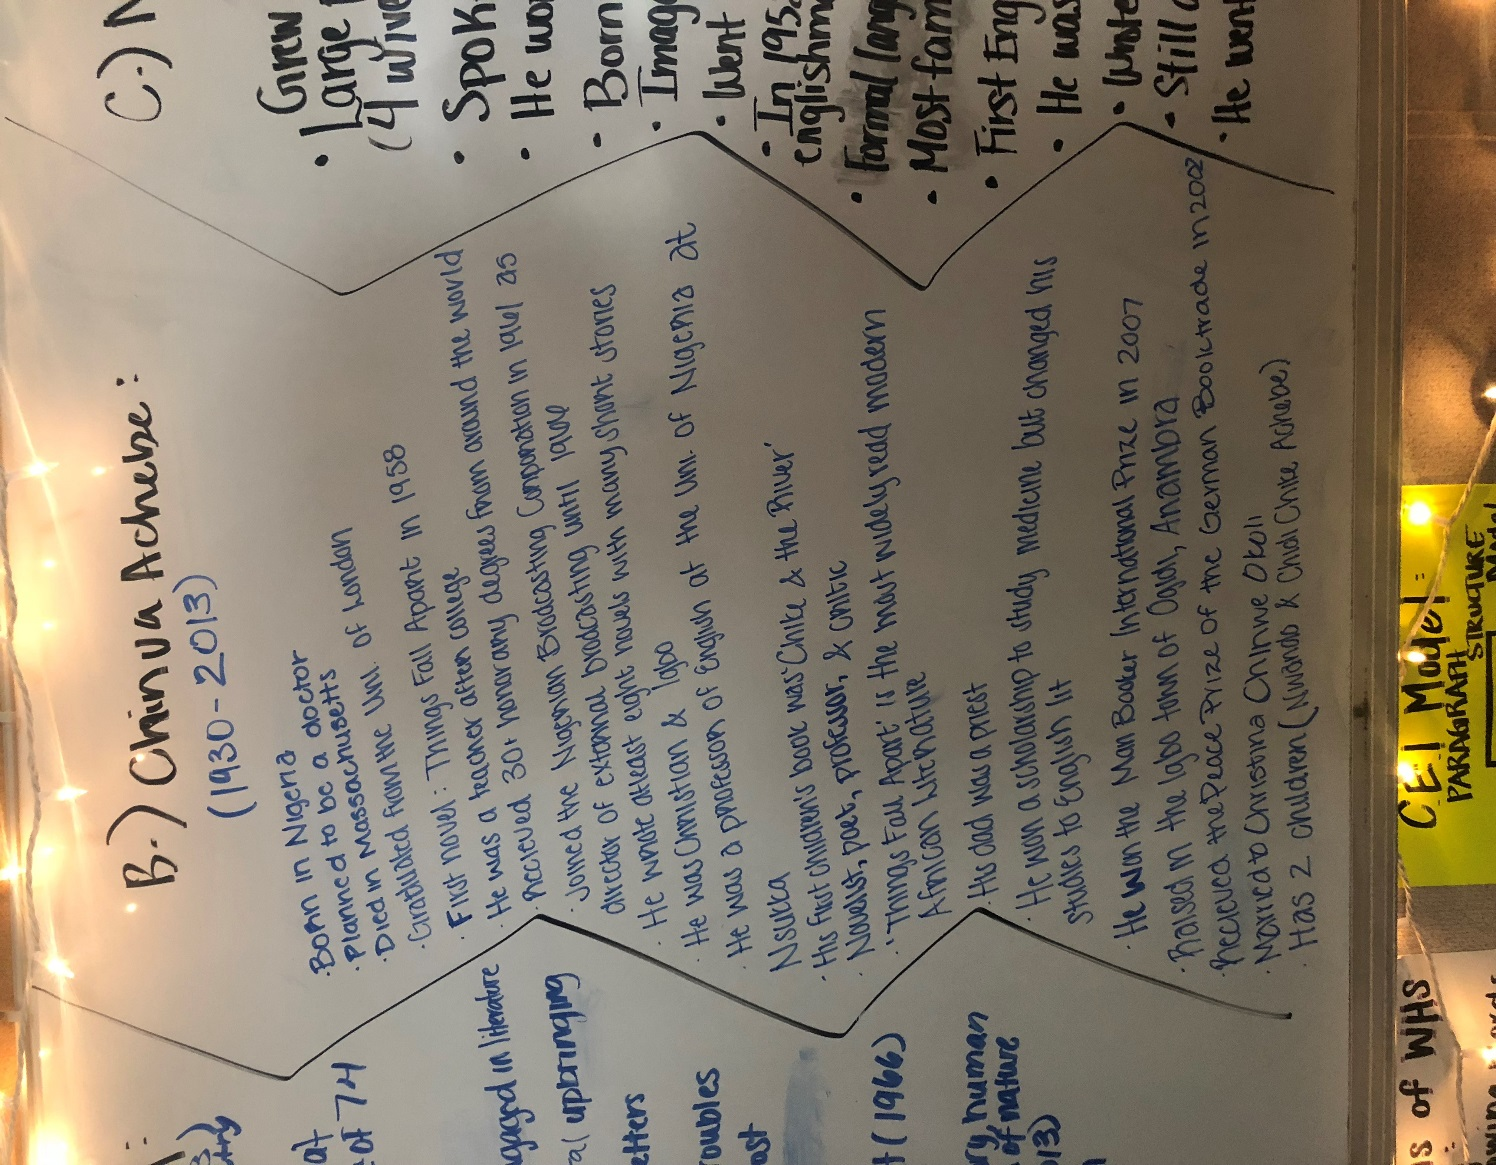 B.) Chinua Achebe:
(1930-2013)
· Born in Nigeria
· Planned to be a doctor
· Died in Massachusetts
· Graduated from the Uni. of London
· First novel: Things Fall Apart in 1958
· He was a teacher after college
· Recieved 30+ honorary degrees from around the world
· Joined the Nigerian Broadcasting Corporation in 1961 as
director of external broadcasting until 1966
· He wrote atleast eight novels with many short stories
· He was Christian & Igbo
· He was a professor of English at the Uni. of Nigeria at
Nsukka
· His first children's book was 'Chike & the River'
· Novelist, poet, professor, & critic
· 'Things Fall Apart' is the most widely read modern
African literature
· His dad was a priest
· He won a scholarship to study medicine but changed his
studies to English lit
· He won the Man Booker International Prize in 2007
· Raised in the Igbo town of Ogidi, Anambra
· Recieved the Peace Prize of the German Booktrade in 2002
· Married to Christina Chinwe Okoli
· Has 2 children (Nwando & Chidi Chike Achebe)
C.) N
Grew
• Large
(4 wive
• Spok
• He wo
• Born
• Image
• Went
• In 195
englishm
• Formal lang
• Most fam
• First Eng
• He was
• Wrote
• Still
• He went
at
of 74
ngaged in literature
al upbringing
etters
roubles
ast
t (1966)
ry human
of nature
013)
CEI Model:
PARAGRAPH STRUCTURE
Model
s of WHS